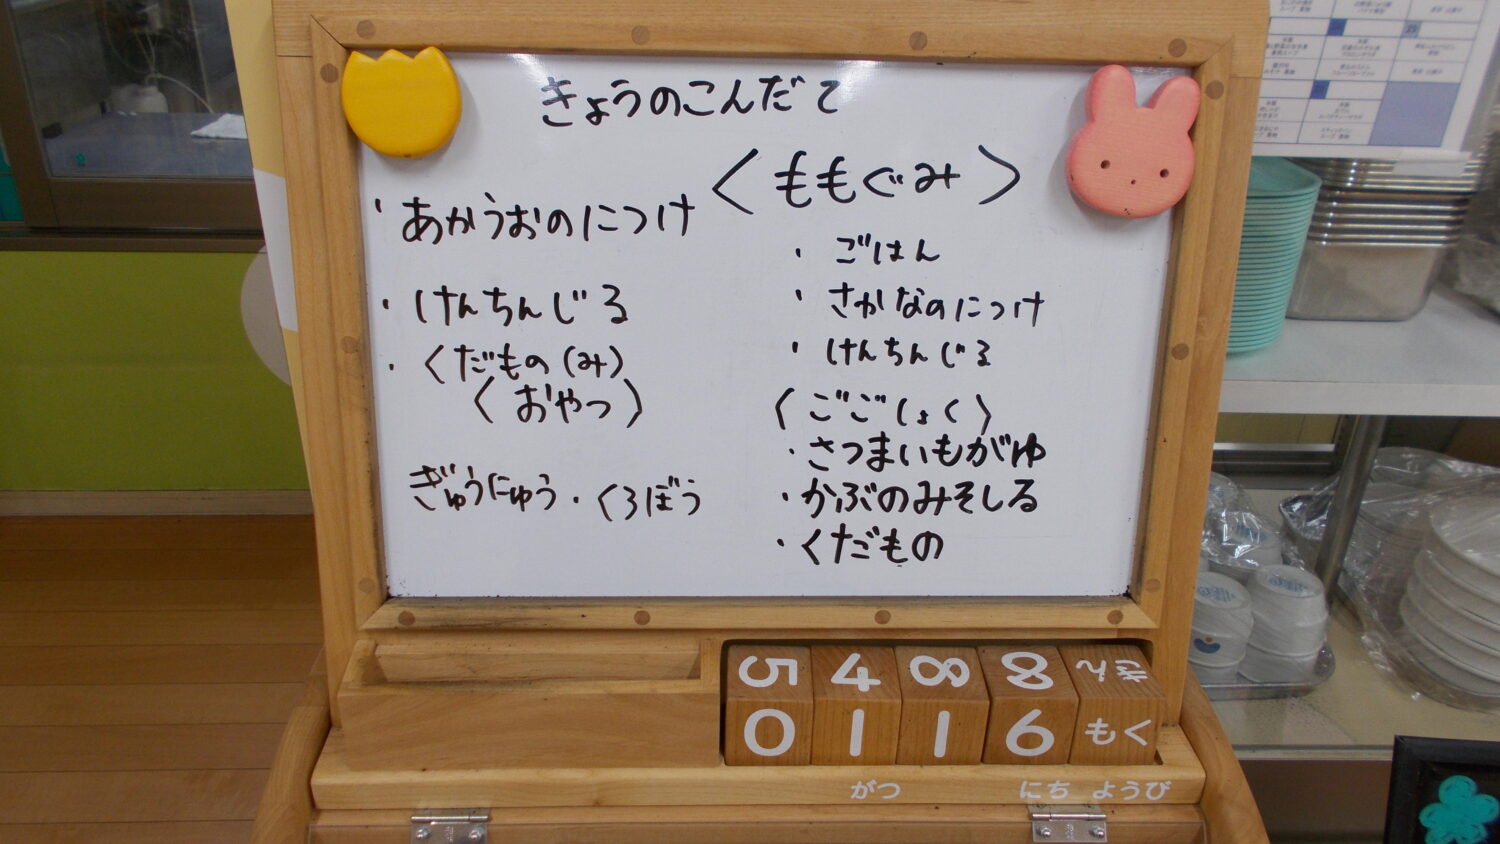 きょうのこんだて
・あかうおのにつけ
・けんちんじる
・くだもの(み)
〈おやつ〉
ぎゅうにゅう・くろぼう
〈ももぐみ〉
・ごはん
・さかなのにつけ
・けんちんじる
〈ごごしょく〉
・さつまいもがゆ
・かぶのみそしる
・くだもの
5 4 8 8
0 1 1 6 もく
がつ にち ようび